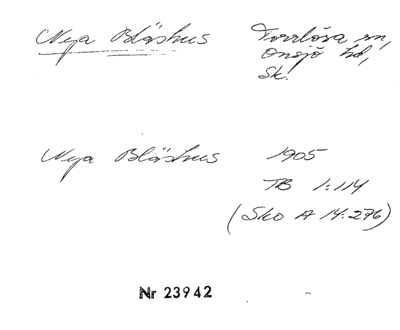 Nya Blåshus Torrlösa sn,
Onsjö hd,
Sk.
Nya Blåshus 1905
TB 1:114
(Sko A 14:276)
Nr 23942